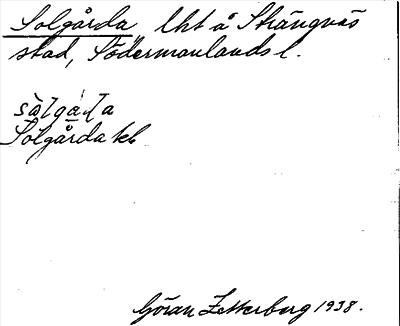 Solgårda, lht å Strängnäs
stad, Södermanlands l.
Solgårda kb
Göran Zetterberg 1938.